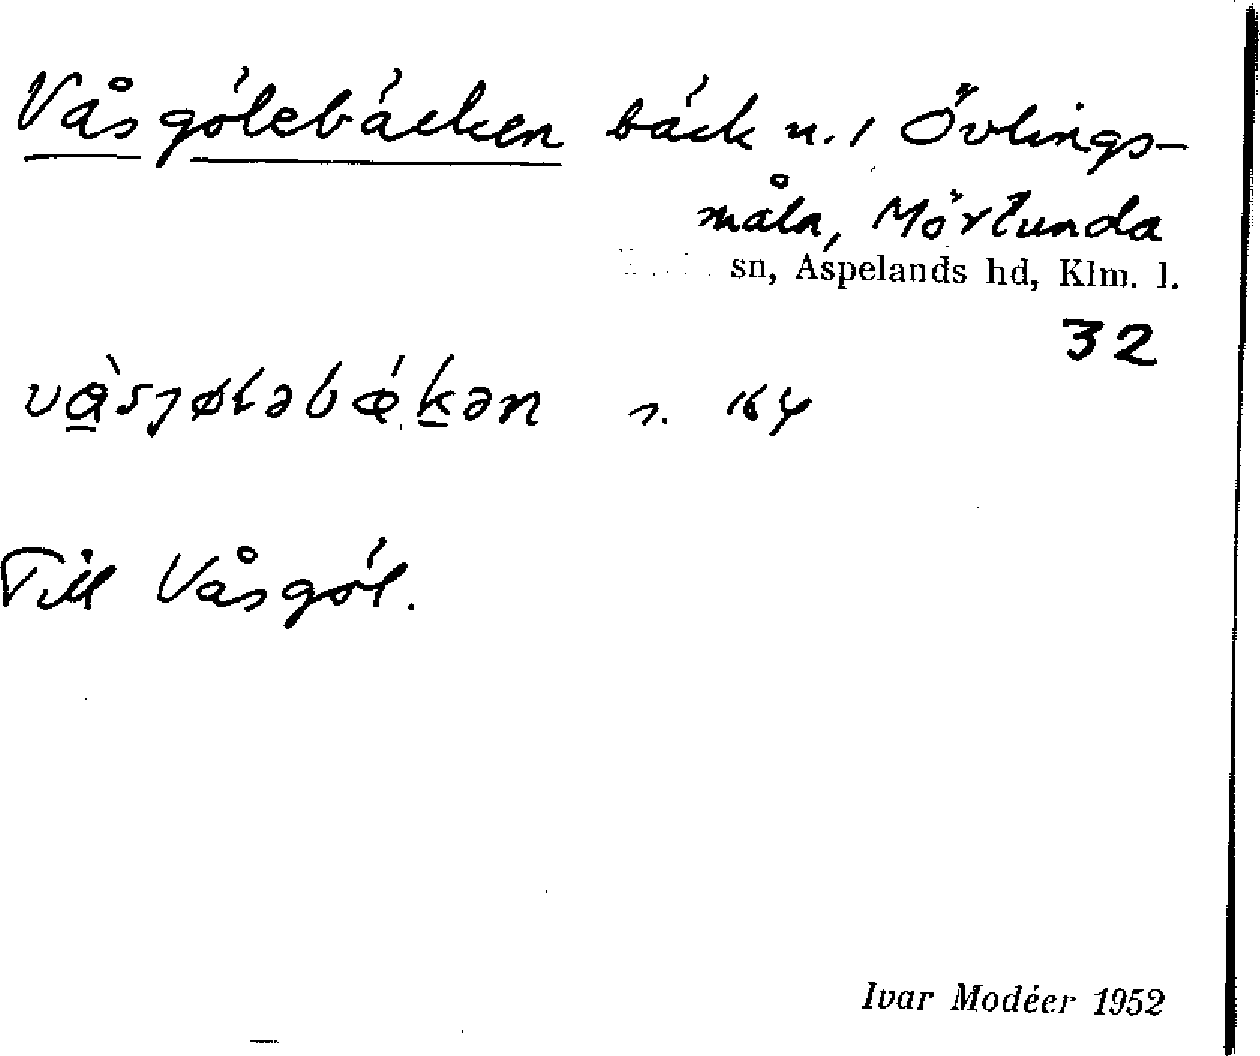 Våsgölebäcken bäck n. / Övlings-
måla, Mörlunda
sn, Aspelands hd, Klm. l.
32
s. 164
Till Våsgöl.
Ivar Modéer 1952